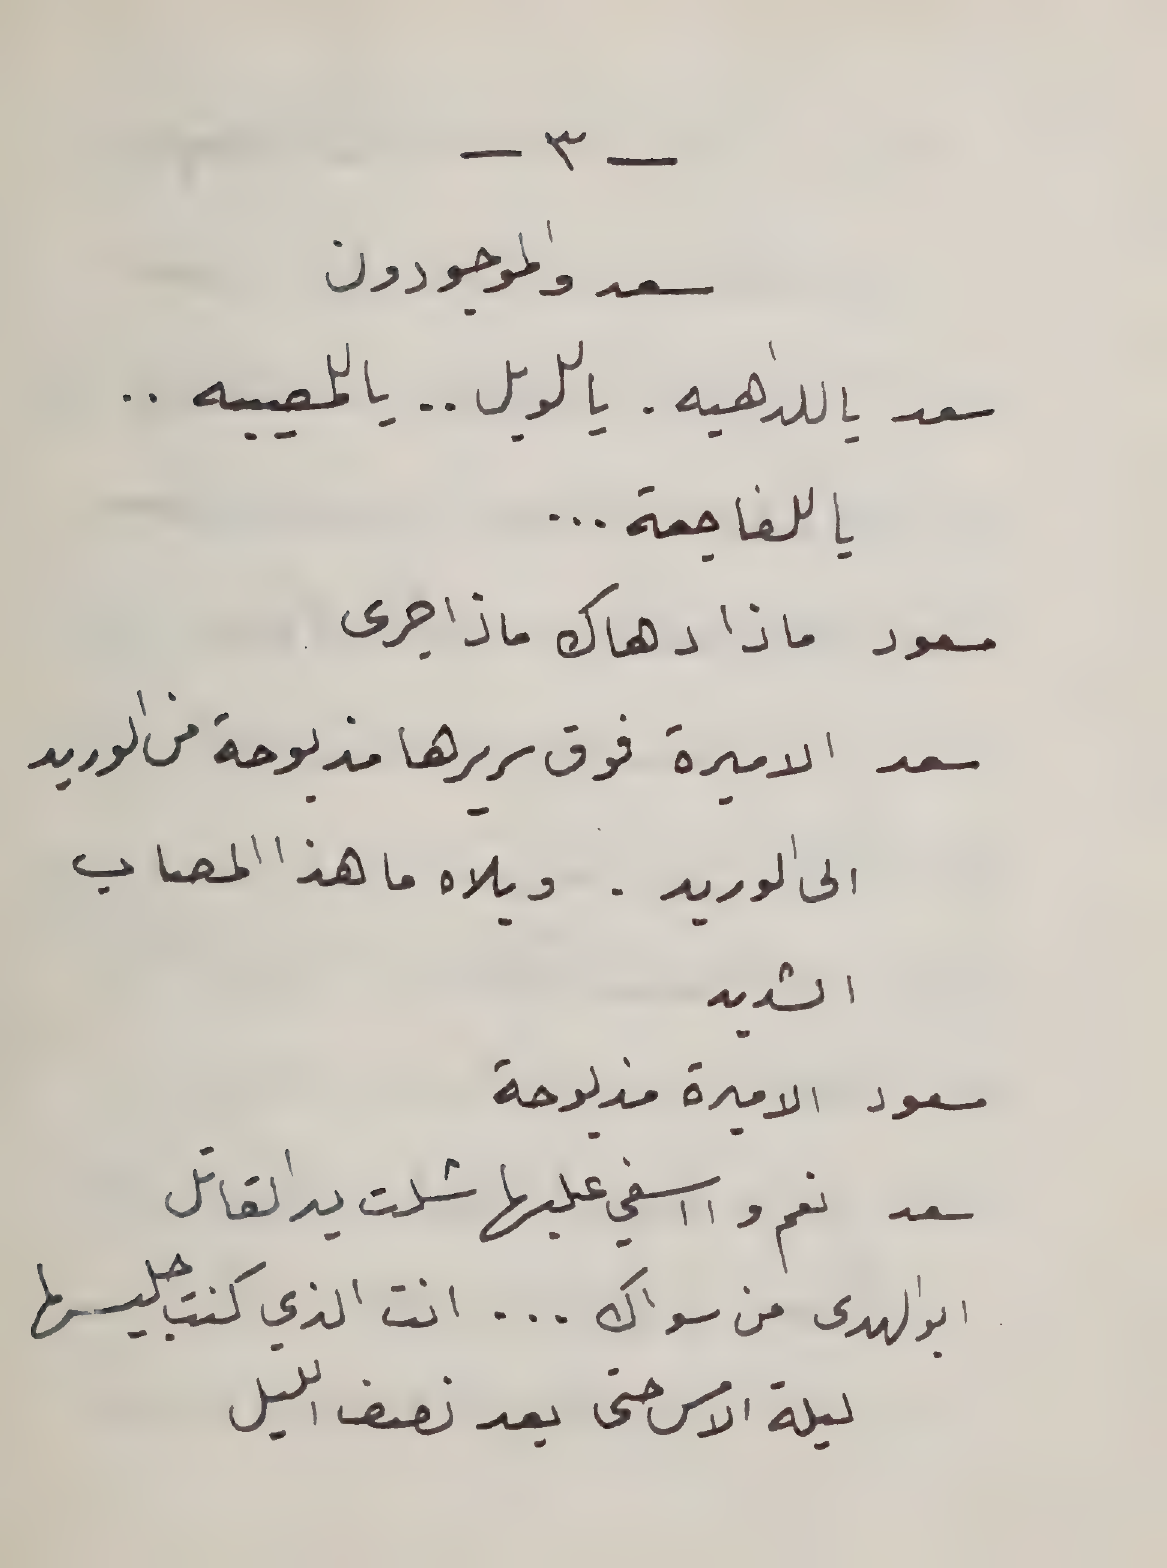 — ٣ —
سعد والموجودون
سعد ياللداهيه . ياللويل .. ياللمصيبه ..
ياللفاجعة ...
مسعود ماذا دهاك ماذا جرى
سعد الاميرة فوق سريرها مذبوحة من الوريد
الى الوريد . ويلاه ما هذا المصاب
الشديد
مسعود الاميرة مذبوحة
سعد نعم وا اسفي عليها شلت يد القاتل
ابو الهدى من سواك ... انت الذي كنت جليسها
ليلة الامس حتى بعد نصف الليل